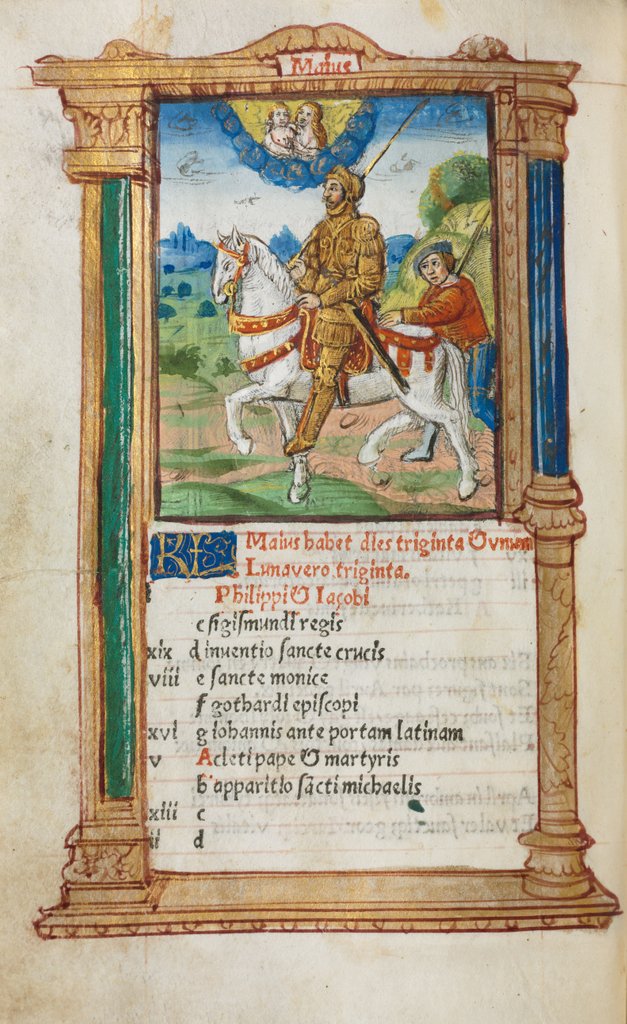 Maius
KL Maius habet dies triginta & vnum
Luna vero triginta.
Philippi & Iacobi
c sigismundi regis
xix d inuentio sancte crucis
viii e sancte monice
f gothardi episcopi
xvi g iohannis ante portam latinam
v A cleti pape & martyris
b apparitio sācti michaelis
xiii c
ii d